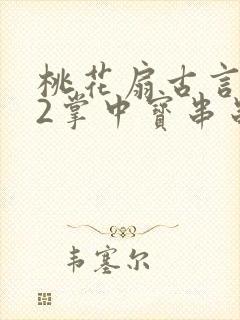 桃花扇古言
2掌中寳串
韦塞尔